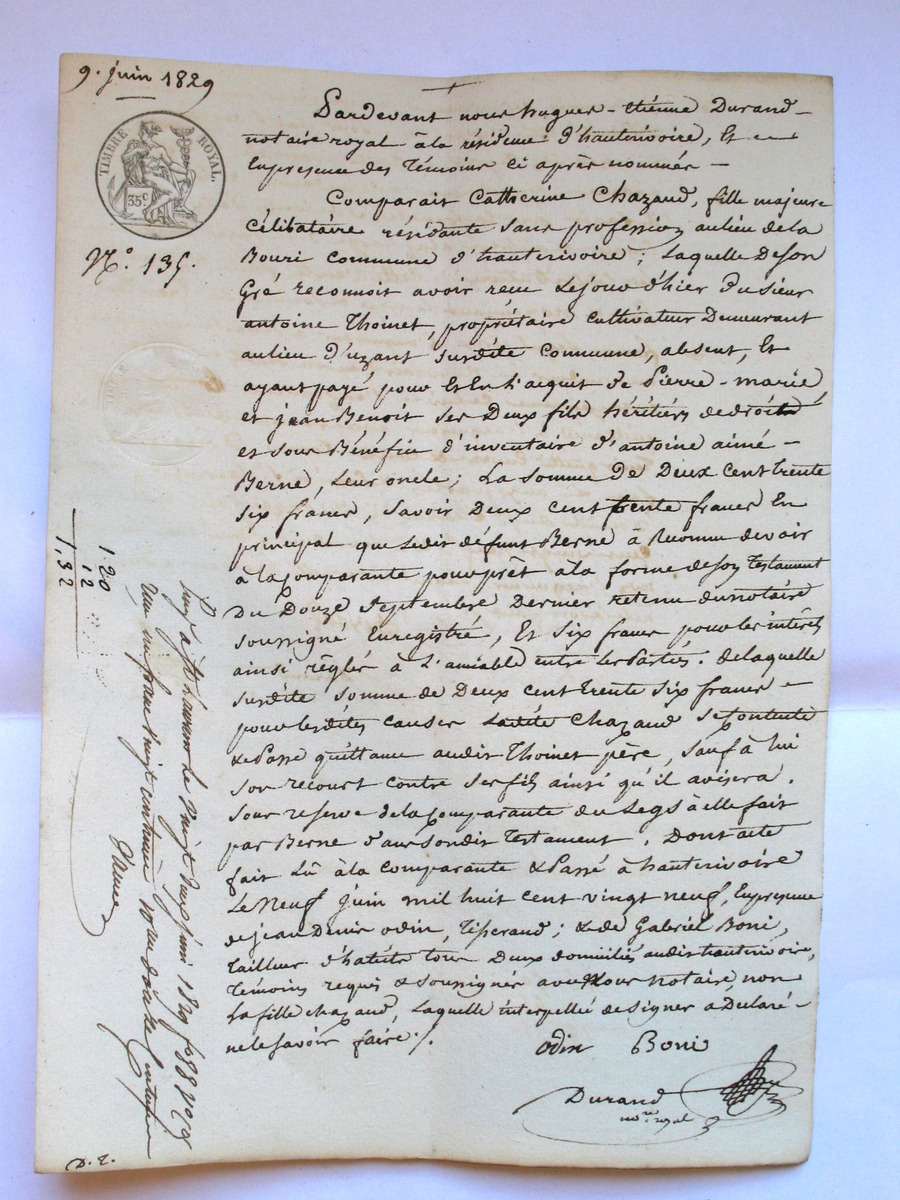 9. juin 1829
TIMBRE ROYAL.
35c
N.o 135.
Pardevant nous hugues-étienne Durand
notaire royal à la résidence d'hauterivoire, Et
Enpresence des Témoins ci après nommés
Comparait Catherine Chazaud, fille majeure
Célibataire résidante sans profession aulieu dela
Bouri commune d'hauterivoire; Laquelle Deson
Gré reconnoit avoir recu Lejour d'hier Du sieur
antoine Thoinet, propriétaire cultivateur Demeurant
aulieu D'uzant susdite commune, absent, Et
ayant payé pour Et En l'acquit de Pierre-marie
et jean Benoit ses Deux fils héritiers de droit
et sous Bénéfice d'inventaire d'antoine aimé
Berne, Leur oncle; La somme De Deux cent trente
six francs, savoir Deux cent trente francs En
principal que Ledit défunt Berne à Reconnu devoir
à la Comparante pour prêt à la forme de son Testament
Du Douze Septembre Dernier retenu du notaire
soussigné Enregistré, Et six francs pour les intérêts
ainsi règlés à L'amiable entre Les Parties. de laquelle
susdite somme de Deux cent trente six francs
pour lesdites causes Ladite Chazaud se Contente
& Passe quittance audit Thoinet père, sauf à lui
son recourt contre ses fils ainsi qu'il avisera.
sous reserve de la Comparante du Legs à elle fait
par Berne dans sondit Testament. Dont acte
fait Lû à la comparante & Passé à hauterivoire
Le Neuf juin mil huit cent vingt neuf, En presence
de jean Denis odin, Tisserand; & de Gabriel Boni,
Tailleur d'habits tous Deux domiciliés audit hauterivoire,
Témoins requis & soussignés avec Nous notaire, non
La fille chazaud, Laquelle interpellée de signer a Déclaré
ne le savoir faire ./.
odin Boni
Durand
nore royal
1.20
12
1,32
juin 1829
un franc vingt centimes
D. T.